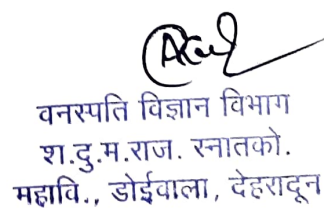 वनस्पति विज्ञान विभाग
श.दु.म.राज. स्नातको.
महावि., डोईवाला, देहरादून